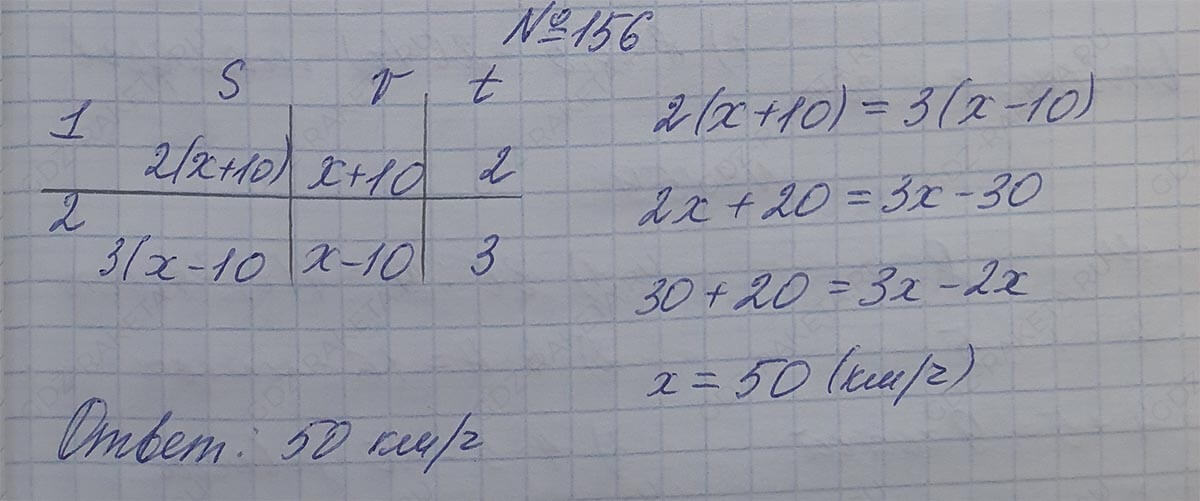 №156
S v t
1
2(x+10) x+10 2
2
3(x-10 x-10 3
2(x+10) = 3(x-10)
2x+20 = 3x-30
30+20 = 3x-2x
x = 50 (км/г)
Ответ: 50 км/г